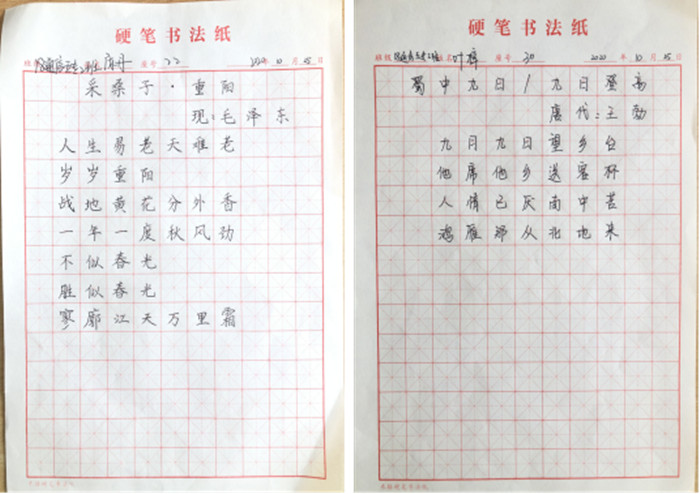 硬笔书法纸
座号 22 2020年10月25日
采桑子·重阳
现:毛泽东
人生易老天难老
岁岁重阳
战地黄花分外香
一年一度秋风劲
不似春光
胜似春光
寥廓江天万里霜
硬笔书法纸
班级 姓名 叶梓 座号 30 2020年10月25日
蜀中九日/九日登高
唐代:王勃
九月九日望乡台
他席他乡送客杯
人情已厌南中苦
鸿雁那从北地来